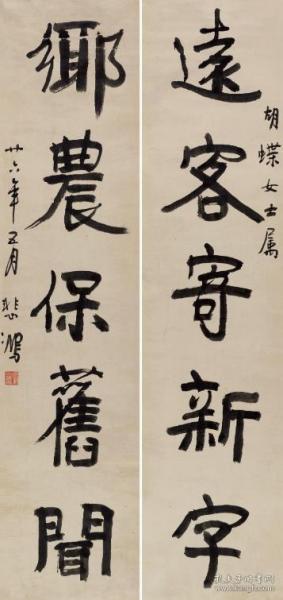 胡蝶女士属
遠客寄新字
鄉農保舊聞
廿六年五月 悲鴻